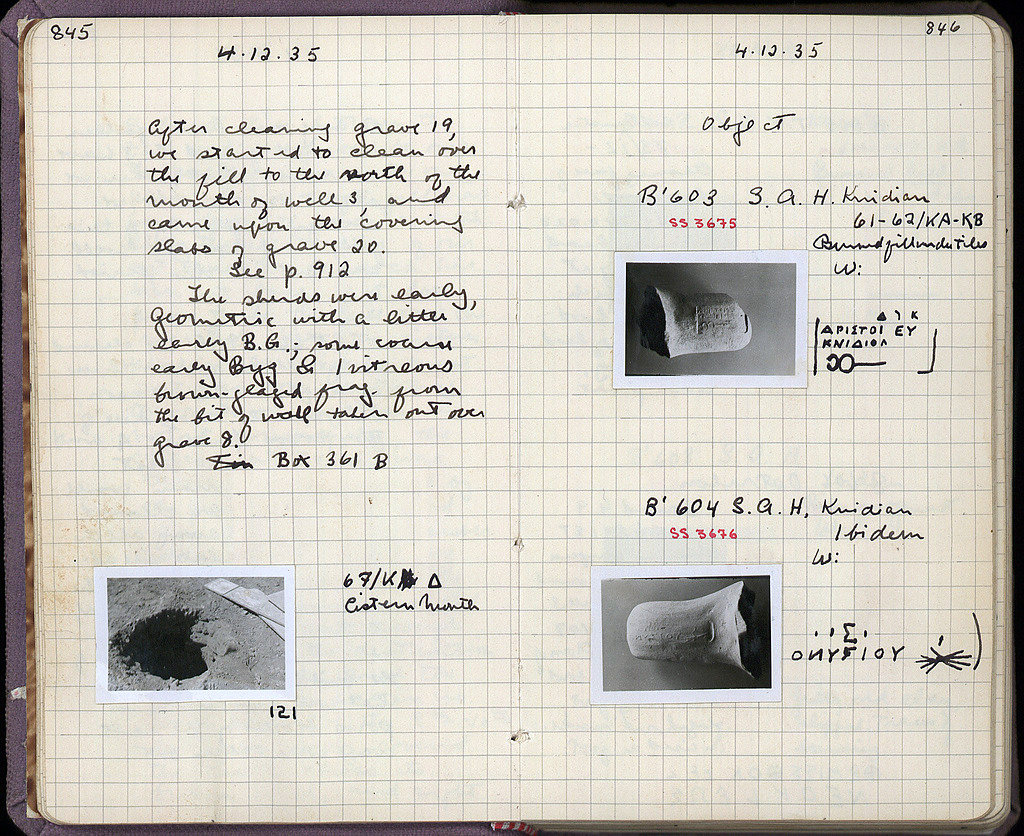 845
4.12.35
After cleaning grave 19,
we started to clean over
the fill to the north of the
mouth of well 3, and
came upon the covering
slabs of grave 20.
See p. 912
The sherds were early,
Geometric with a little
early B.G.; some coarse
early Byz & 1 vitreous
brown-glazed frag. from
the bit of wall taken out over
grave 8.
Box 361 B
67/K Δ
Cistern Mouth
121
846
4.12.35
Object
B'603 S.A.H. Knidian
SS 3675
61-62/KA-KB
Burned fill under tiles
W:
Δ Υ Κ
ΑΡΙΣΤΟΙ ΕΥ
ΚΝΙΔΙΟΝ
B'604 S.A.H. Knidian
SS 3676
Ibidem
W:
Σ
ΟΝΥΣΙΟΥ